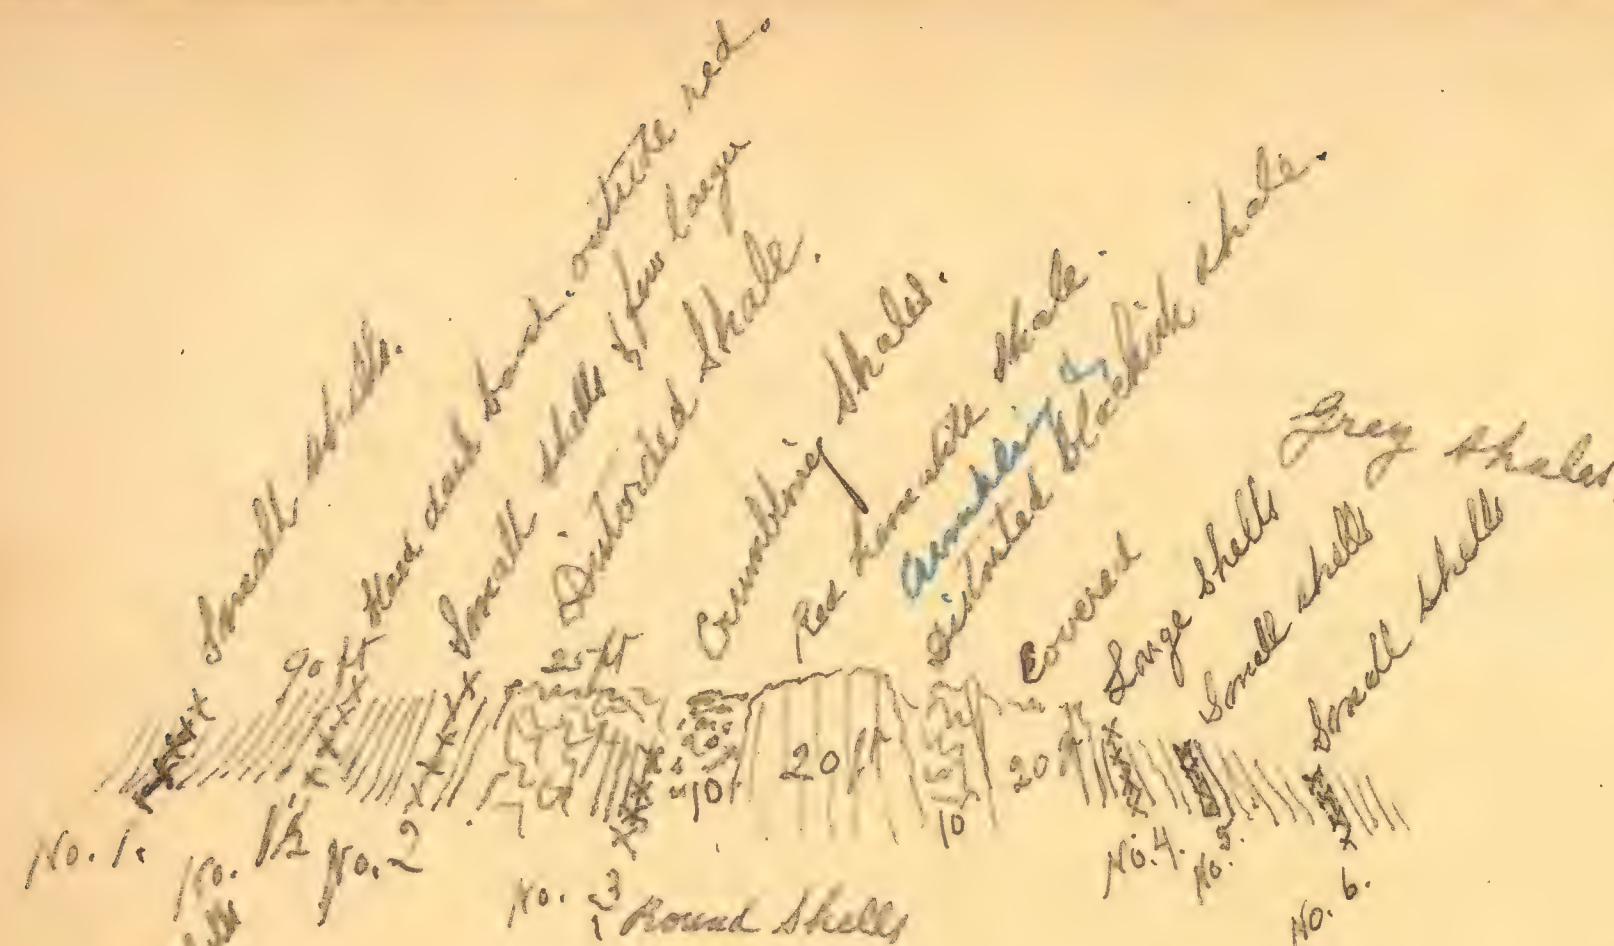 Small shells.
90 ft
Hard dark band. outside red.
Small shells & few larger
25 ft
Distorded Shale.
Crumbling Shales.
Red shale.
Crumbling &
Distorted blackish shale.
Covered
Large Shells
Grey shales
Small shells
Small shells
10
20 ft
10
20 ft
No. 1.
No. 1½
No. 2
No. 3
Round Shells
No. 4.
No. 5.
No. 6.